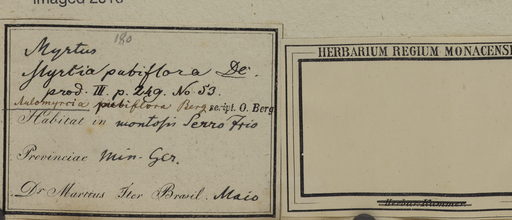 Imaged 2016
Myrtus 180
Myrtia pubiflora De.
prod. III. p. 249. No 53.
Aulomyrcia pubiflora Berg script. O. Berg.
Habitat in montosis Serro Frio
Provinciae Min. Ger.
Dr Martius Iter Brasil. Maio
HERBARIUM REGIUM MONACENSE